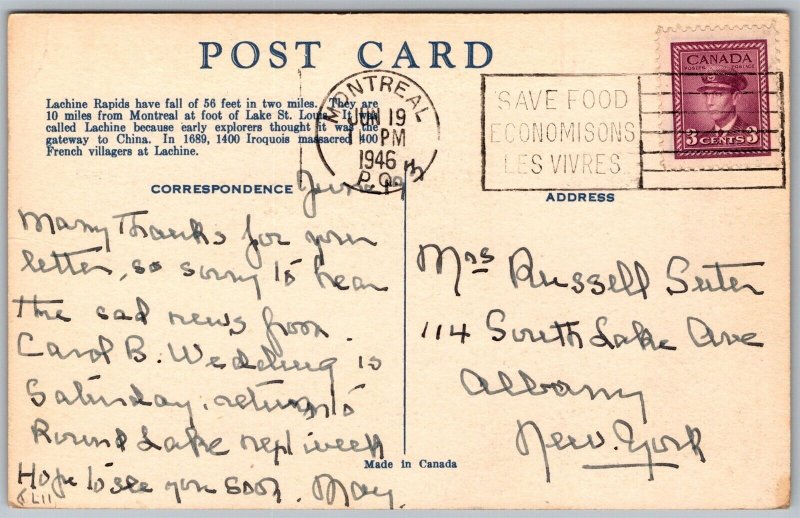 POST CARD
Lachine Rapids have fall of 56 feet in two miles. They are
10 miles from Montreal at foot of Lake St. Louis. It was
called Lachine because early explorers thought it was the
gateway to China. In 1689, 1400 Iroquois massacred 400
French villagers at Lachine.
MONTREAL
JUN 19
PM
1946
P.Q.
SAVE FOOD
ECONOMISONS
LES VIVRES
CANADA
POSTES POSTAGE
3 CENTS 3
CORRESPONDENCE
ADDRESS
June 19
Many Thanks for your
letter, so sorry to hear
the sad news from
Carol B. Wedding is
Saturday. return to
Round Lake next week
Hope to see you soon. May.
Mrs Russell Suter
114 South Lake Ave
Albany
New. York
Made in Canada